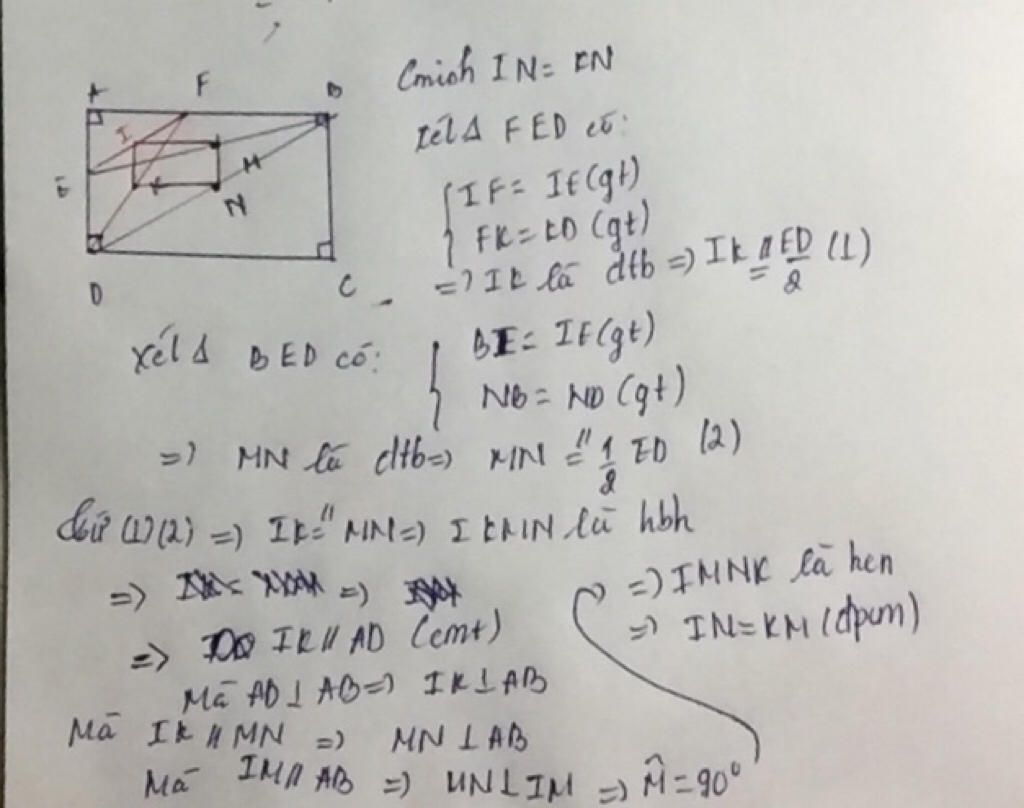 A F B
I
E M
K N
D C
Cminh IN = KN
Xét Δ FED có:
IF = IE (gt)
FK = KD (gt)
=> IK là đtb => IK // = ED/2 (1)
Xét Δ BED có: { BI = IE (gt)
NB = ND (gt)
=> MN là đtb => MN // = 1/2 ED (2)
Từ (1)(2) => IK = // MN => IKMN là hbh
=> IK // AD (cmt)
Mà AD ⊥ AB => IK ⊥ AB
Mà IK // MN => MN ⊥ AB
Mà IM // AB => MN ⊥ IM => M̂ = 90°
=> IMNK là hcn
=> IN = KM (đpcm)